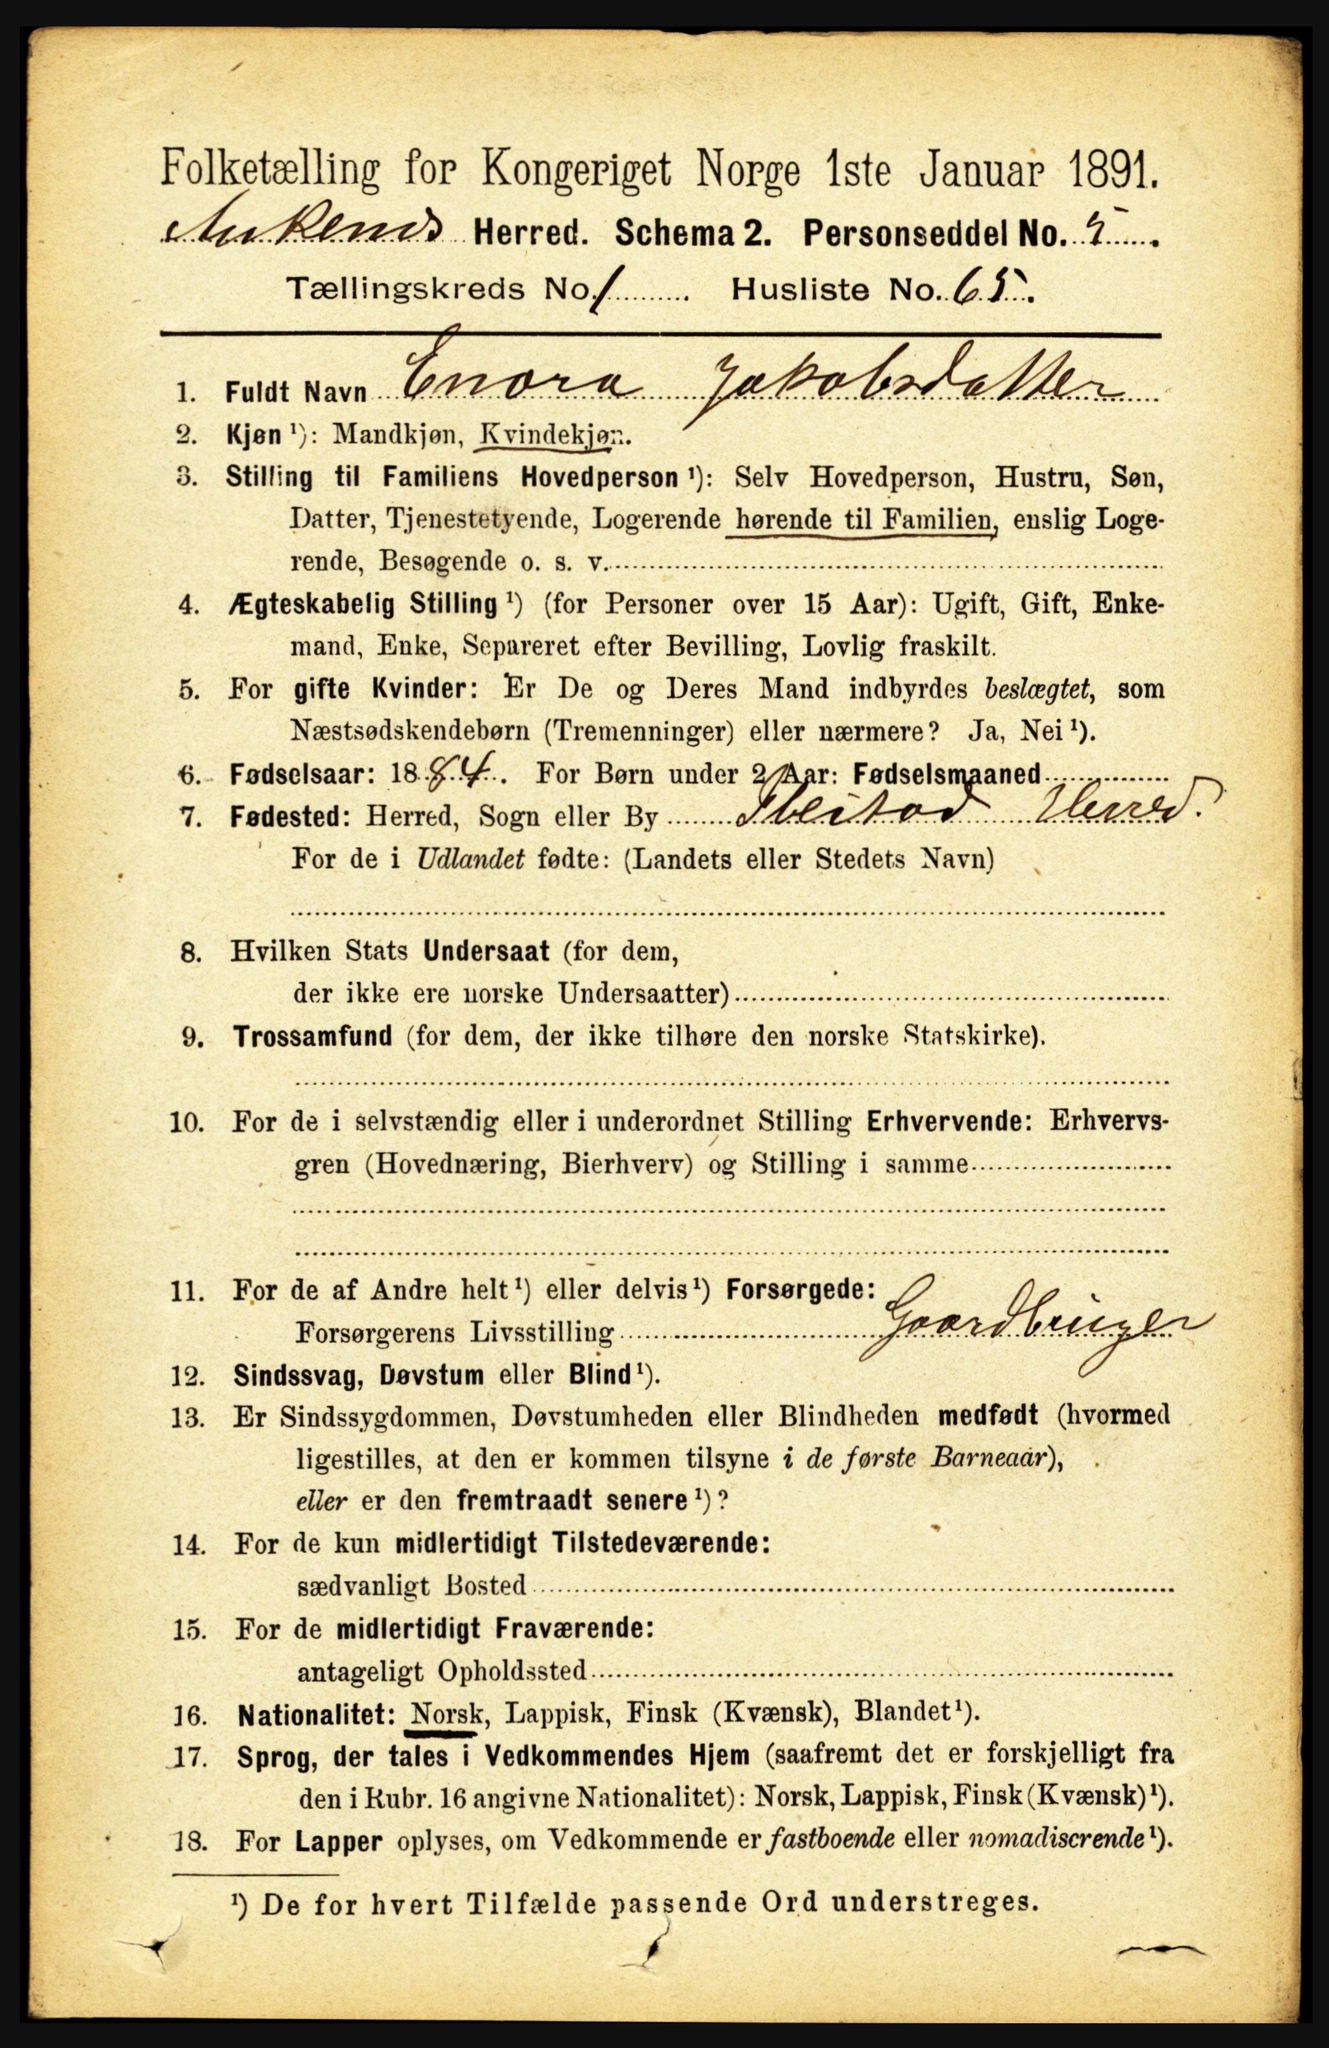 Folketælling for Kongeriget Norge 1ste Januar 1891.
Ankenes Herred. Schema 2. Personseddel No. 5.
Tællingskreds No. 1. Husliste No. 65.
1. Fuldt Navn Enora Jakobsdatter
2. Kjøn ¹): Mandkjøn, Kvindekjøn.
3. Stilling til Familiens Hovedperson ¹): Selv Hovedperson, Hustru, Søn,
Datter, Tjenestetyende, Logerende hørende til Familien, enslig Loge-
rende, Besøgende o. s. v.
4. Ægteskabelig Stilling ¹) (for Personer over 15 Aar): Ugift, Gift, Enke-
mand, Enke, Separeret efter Bevilling, Lovlig fraskilt.
5. For gifte Kvinder: Er De og Deres Mand indbyrdes beslægtet, som
Næstsødskendebørn (Tremenninger) eller nærmere? Ja, Nei ¹).
6. Fødselsaar: 1884. For Børn under 2 Aar: Fødselsmaaned
7. Fødested: Herred, Sogn eller By Ibestad Herred.
For de i Udlandet fødte: (Landets eller Stedets Navn)
8. Hvilken Stats Undersaat (for dem,
der ikke ere norske Undersaatter)
9. Trossamfund (for dem, der ikke tilhøre den norske Statskirke).
10. For de i selvstændig eller i underordnet Stilling Erhvervende: Erhvervs-
gren (Hovednæring, Bierhverv) og Stilling i samme
11. For de af Andre helt ¹) eller delvis ¹) Forsørgede:
Forsørgerens Livsstilling Gaardbruger
12. Sindssvag, Døvstum eller Blind ¹).
13. Er Sindssygdommen, Døvstumheden eller Blindheden medfødt (hvormed
ligestilles, at den er kommen tilsyne i de første Barneaar),
eller er den fremtraadt senere ¹)?
14. For de kun midlertidigt Tilstedeværende:
sædvanligt Bosted
15. For de midlertidigt Fraværende:
antageligt Opholdssted
16. Nationalitet: Norsk, Lappisk, Finsk (Kvænsk), Blandet ¹).
17. Sprog, der tales i Vedkommendes Hjem (saafremt det er forskjelligt fra
den i Rubr. 16 angivne Nationalitet): Norsk, Lappisk, Finsk (Kvænsk) ¹).
18. For Lapper oplyses, om Vedkommende er fastboende eller nomadiserende ¹).
¹) De for hvert Tilfælde passende Ord understreges.